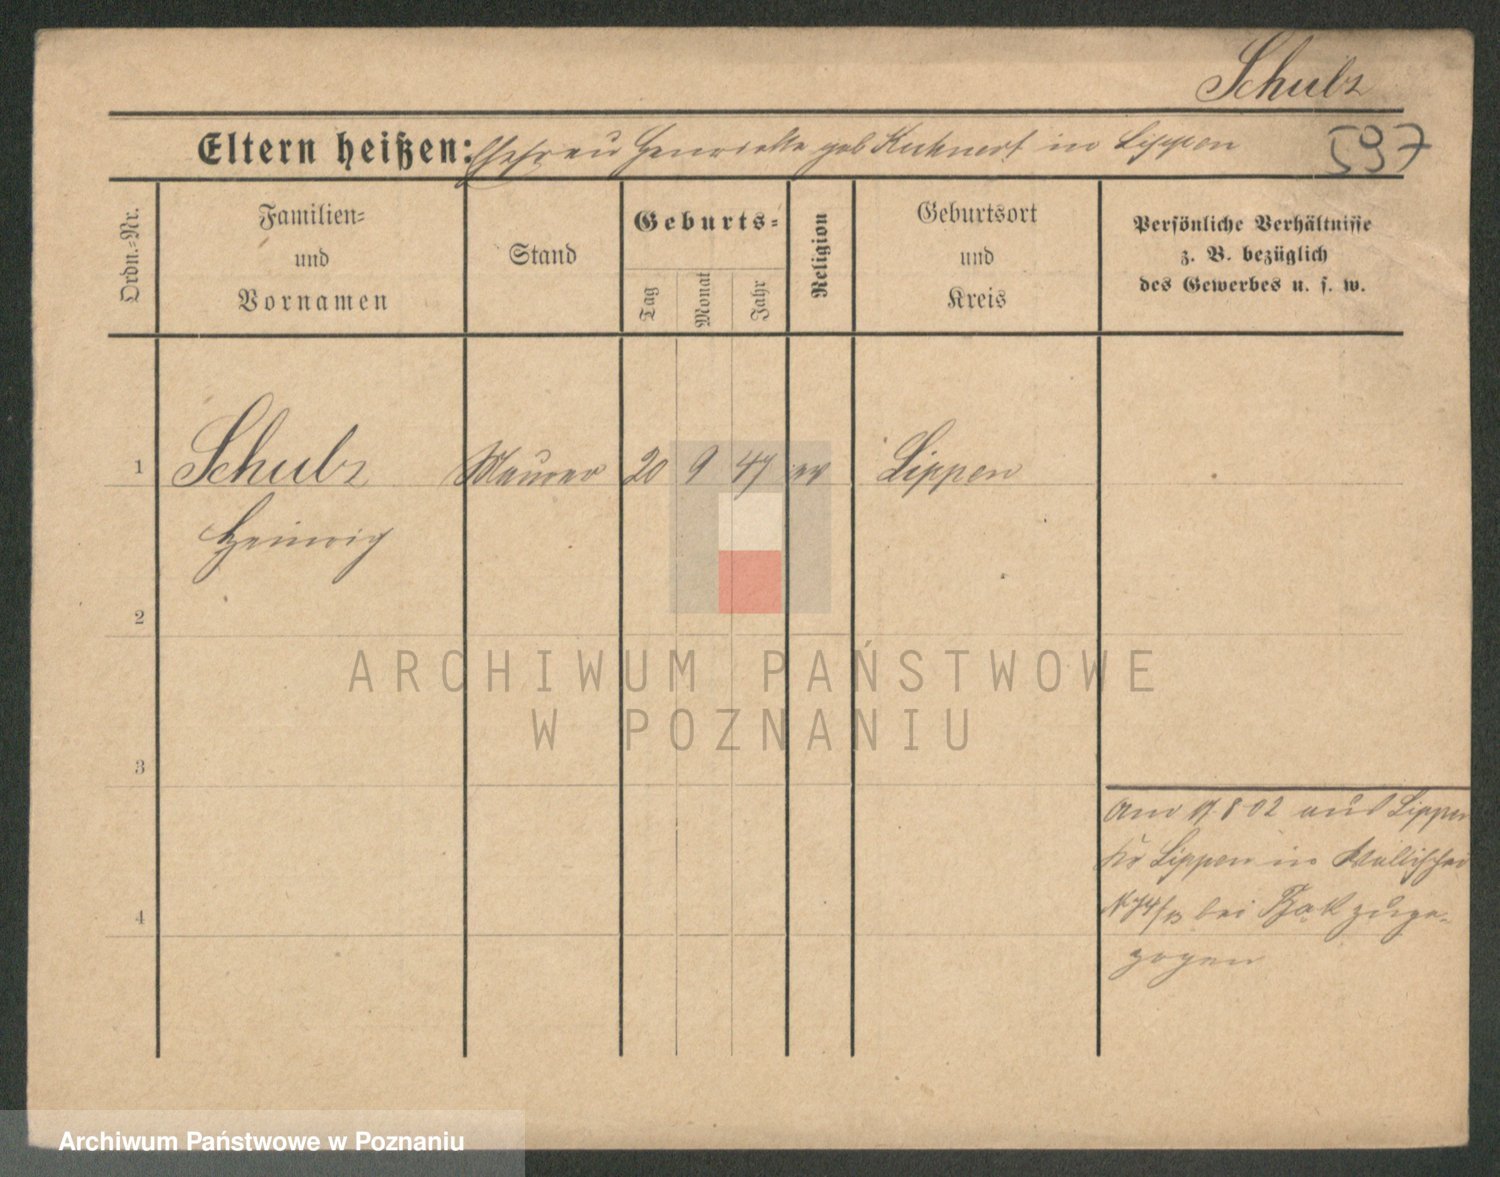 Schulz
Eltern heißen: Ehefrau Henriette geb Kuhnert in Lippen
597
Ordn.=Nr.
Familien=
und
Vornamen
Stand
Geburts=
Tag
Monat
Jahr
Religion
Geburtsort
und
Kreis
Persönliche Verhältnisse
z. B. bezüglich
des Gewerbes u. s. w.
1 Schulz Maurer 20 9 47 ev Lippen
Heinrich
2
ARCHIWUM PAŃSTWOWE
W POZNANIU
3
Am 8 02 aus Lippen
Kr Lippen in Wallischei
bei zuge-
4
zogen
Archiwum Państwowe w Poznaniu